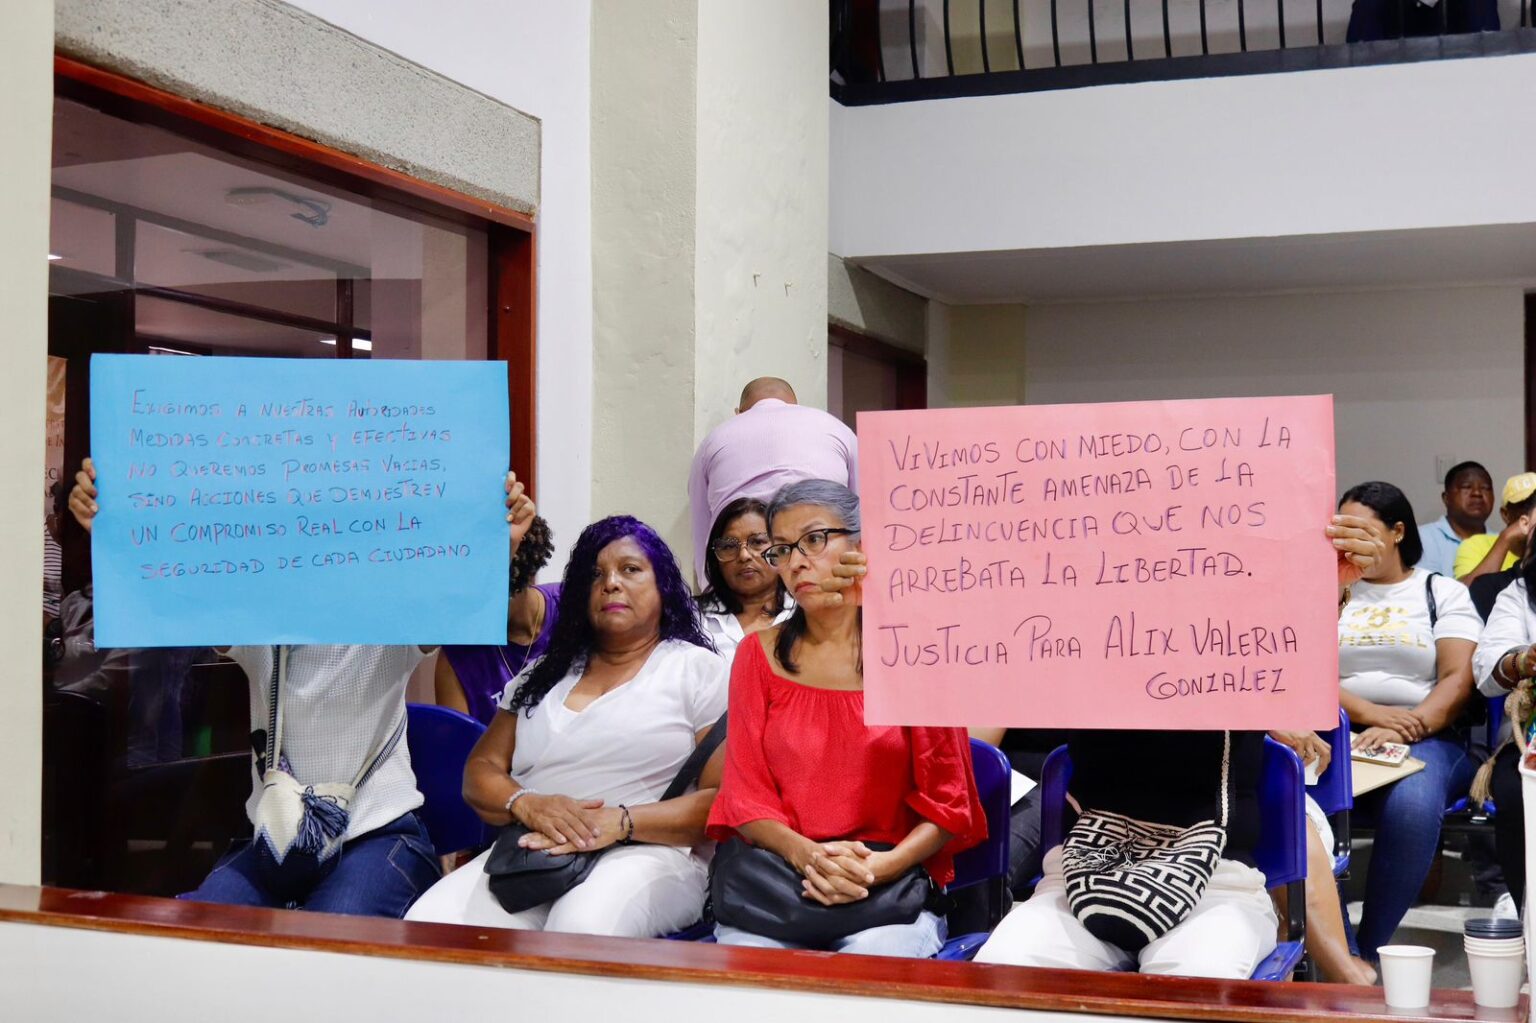 EXIGIMOS A NUESTRAS AUTORIDADES
MEDIDAS CONCRETAS Y EFECTIVAS
NO QUEREMOS PROMESAS VACIAS,
SINO ACCIONES QUE DEMUESTREN
UN COMPROMISO REAL CON LA
SEGURIDAD DE CADA CIUDADANO
VIVIMOS CON MIEDO, CON LA
CONSTANTE AMENAZA DE LA
DELINCUENCIA QUE NOS
ARREBATA LA LIBERTAD.
JUSTICIA PARA ALIX VALERIA
GONZALEZ
CHANEL